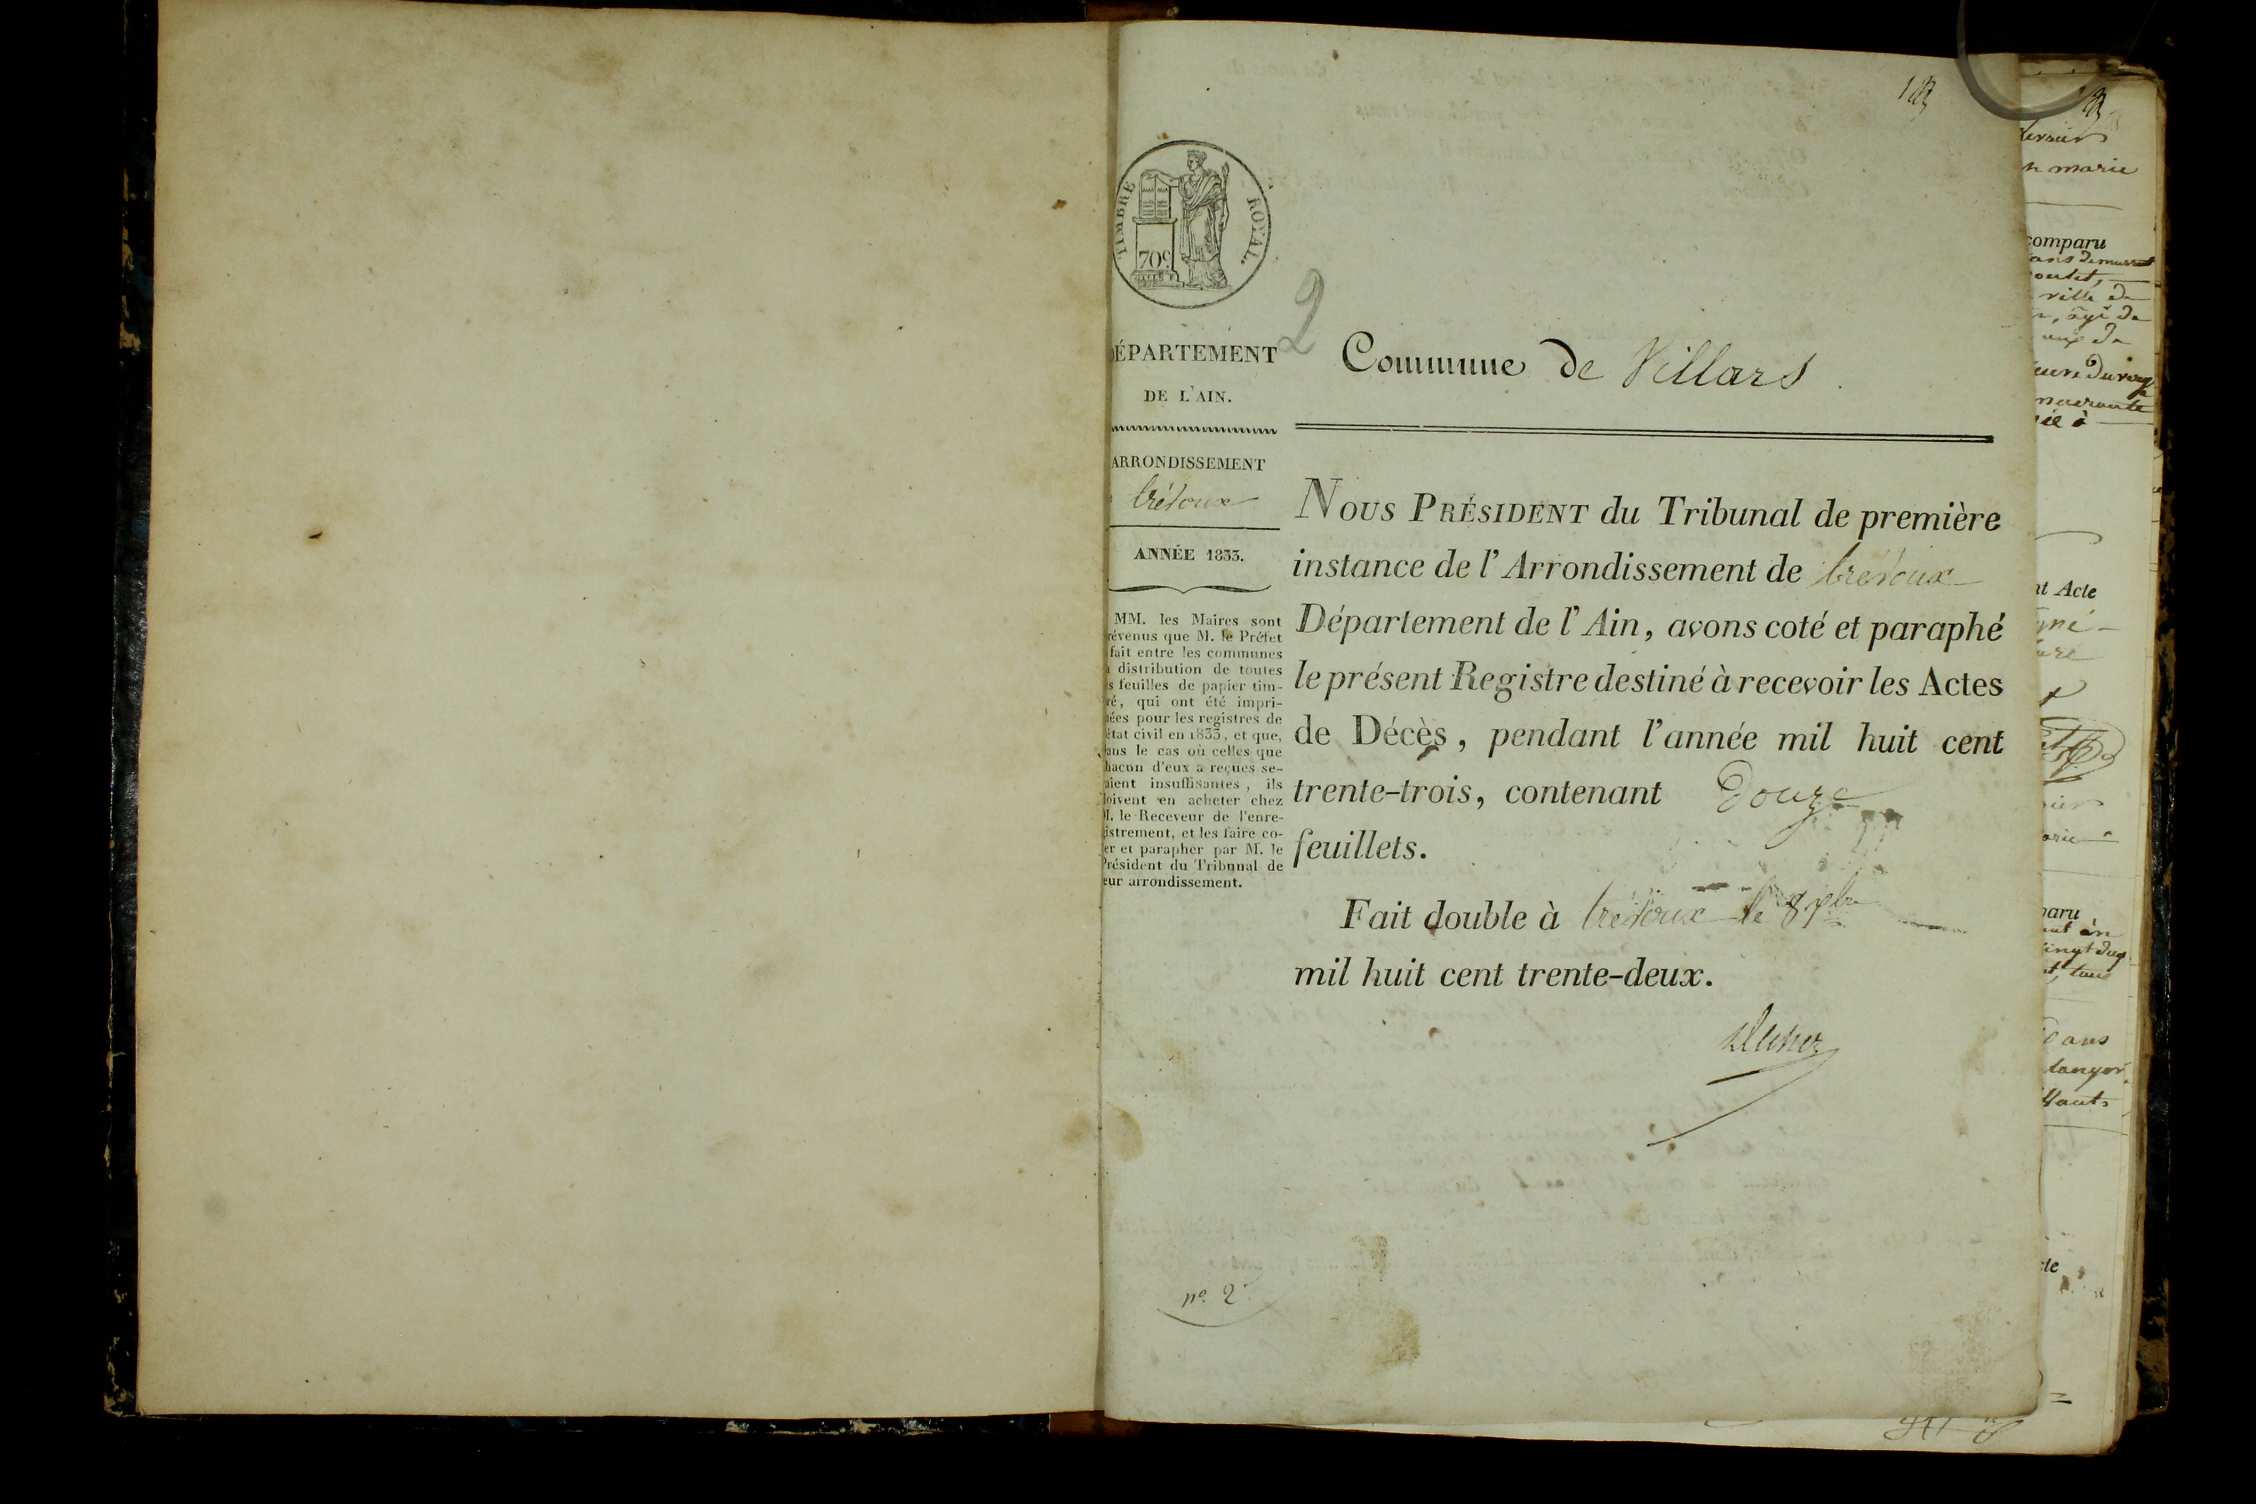 TIMBRE ROYAL.
70c
2
DÉPARTEMENT
DE L'AIN.
ARRONDISSEMENT
trévoux
ANNÉE 1833.
MM. les Maires sont
révenus que M. le Préfet
fait entre les communes
a distribution de toutes
s feuilles de papier tim-
ré, qui ont été impri-
ées pour les registres de
état civil en 1833, et que,
ans le cas où celles que
hacun d'eux a reçues se-
aient insuffisantes, ils
doivent en acheter chez
M. le Receveur de l'enre-
istrement, et les faire co-
er et parapher par M. le
Président du Tribunal de
eur arrondissement.
no. 2
Commune de Villars
NOUS PRÉSIDENT du Tribunal de première
instance de l'Arrondissement de trévoux
Département de l'Ain, avons coté et paraphé
le présent Registre destiné à recevoir les Actes
de Décès, pendant l'année mil huit cent
trente-trois, contenant Douze
feuillets.
Fait double à trévoux le 8 xbre
mil huit cent trente-deux.
n marie
comparu
ville de
nt Acte
ans